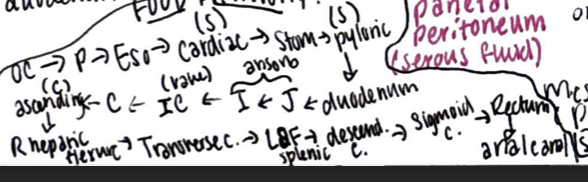 FOOD
(S) (S)
OC → P → Eso → Cardiac → Stom → pyloric
parietal
peritoneum
(serous fluid)
(C) (valve) absorb
ascending ← C ← IC ← I ← J ← duodenum
R heparic flexure → Transverse c. → L splenic F → descend. c. → Sigmoid c. → Rectum
↓
anal canal